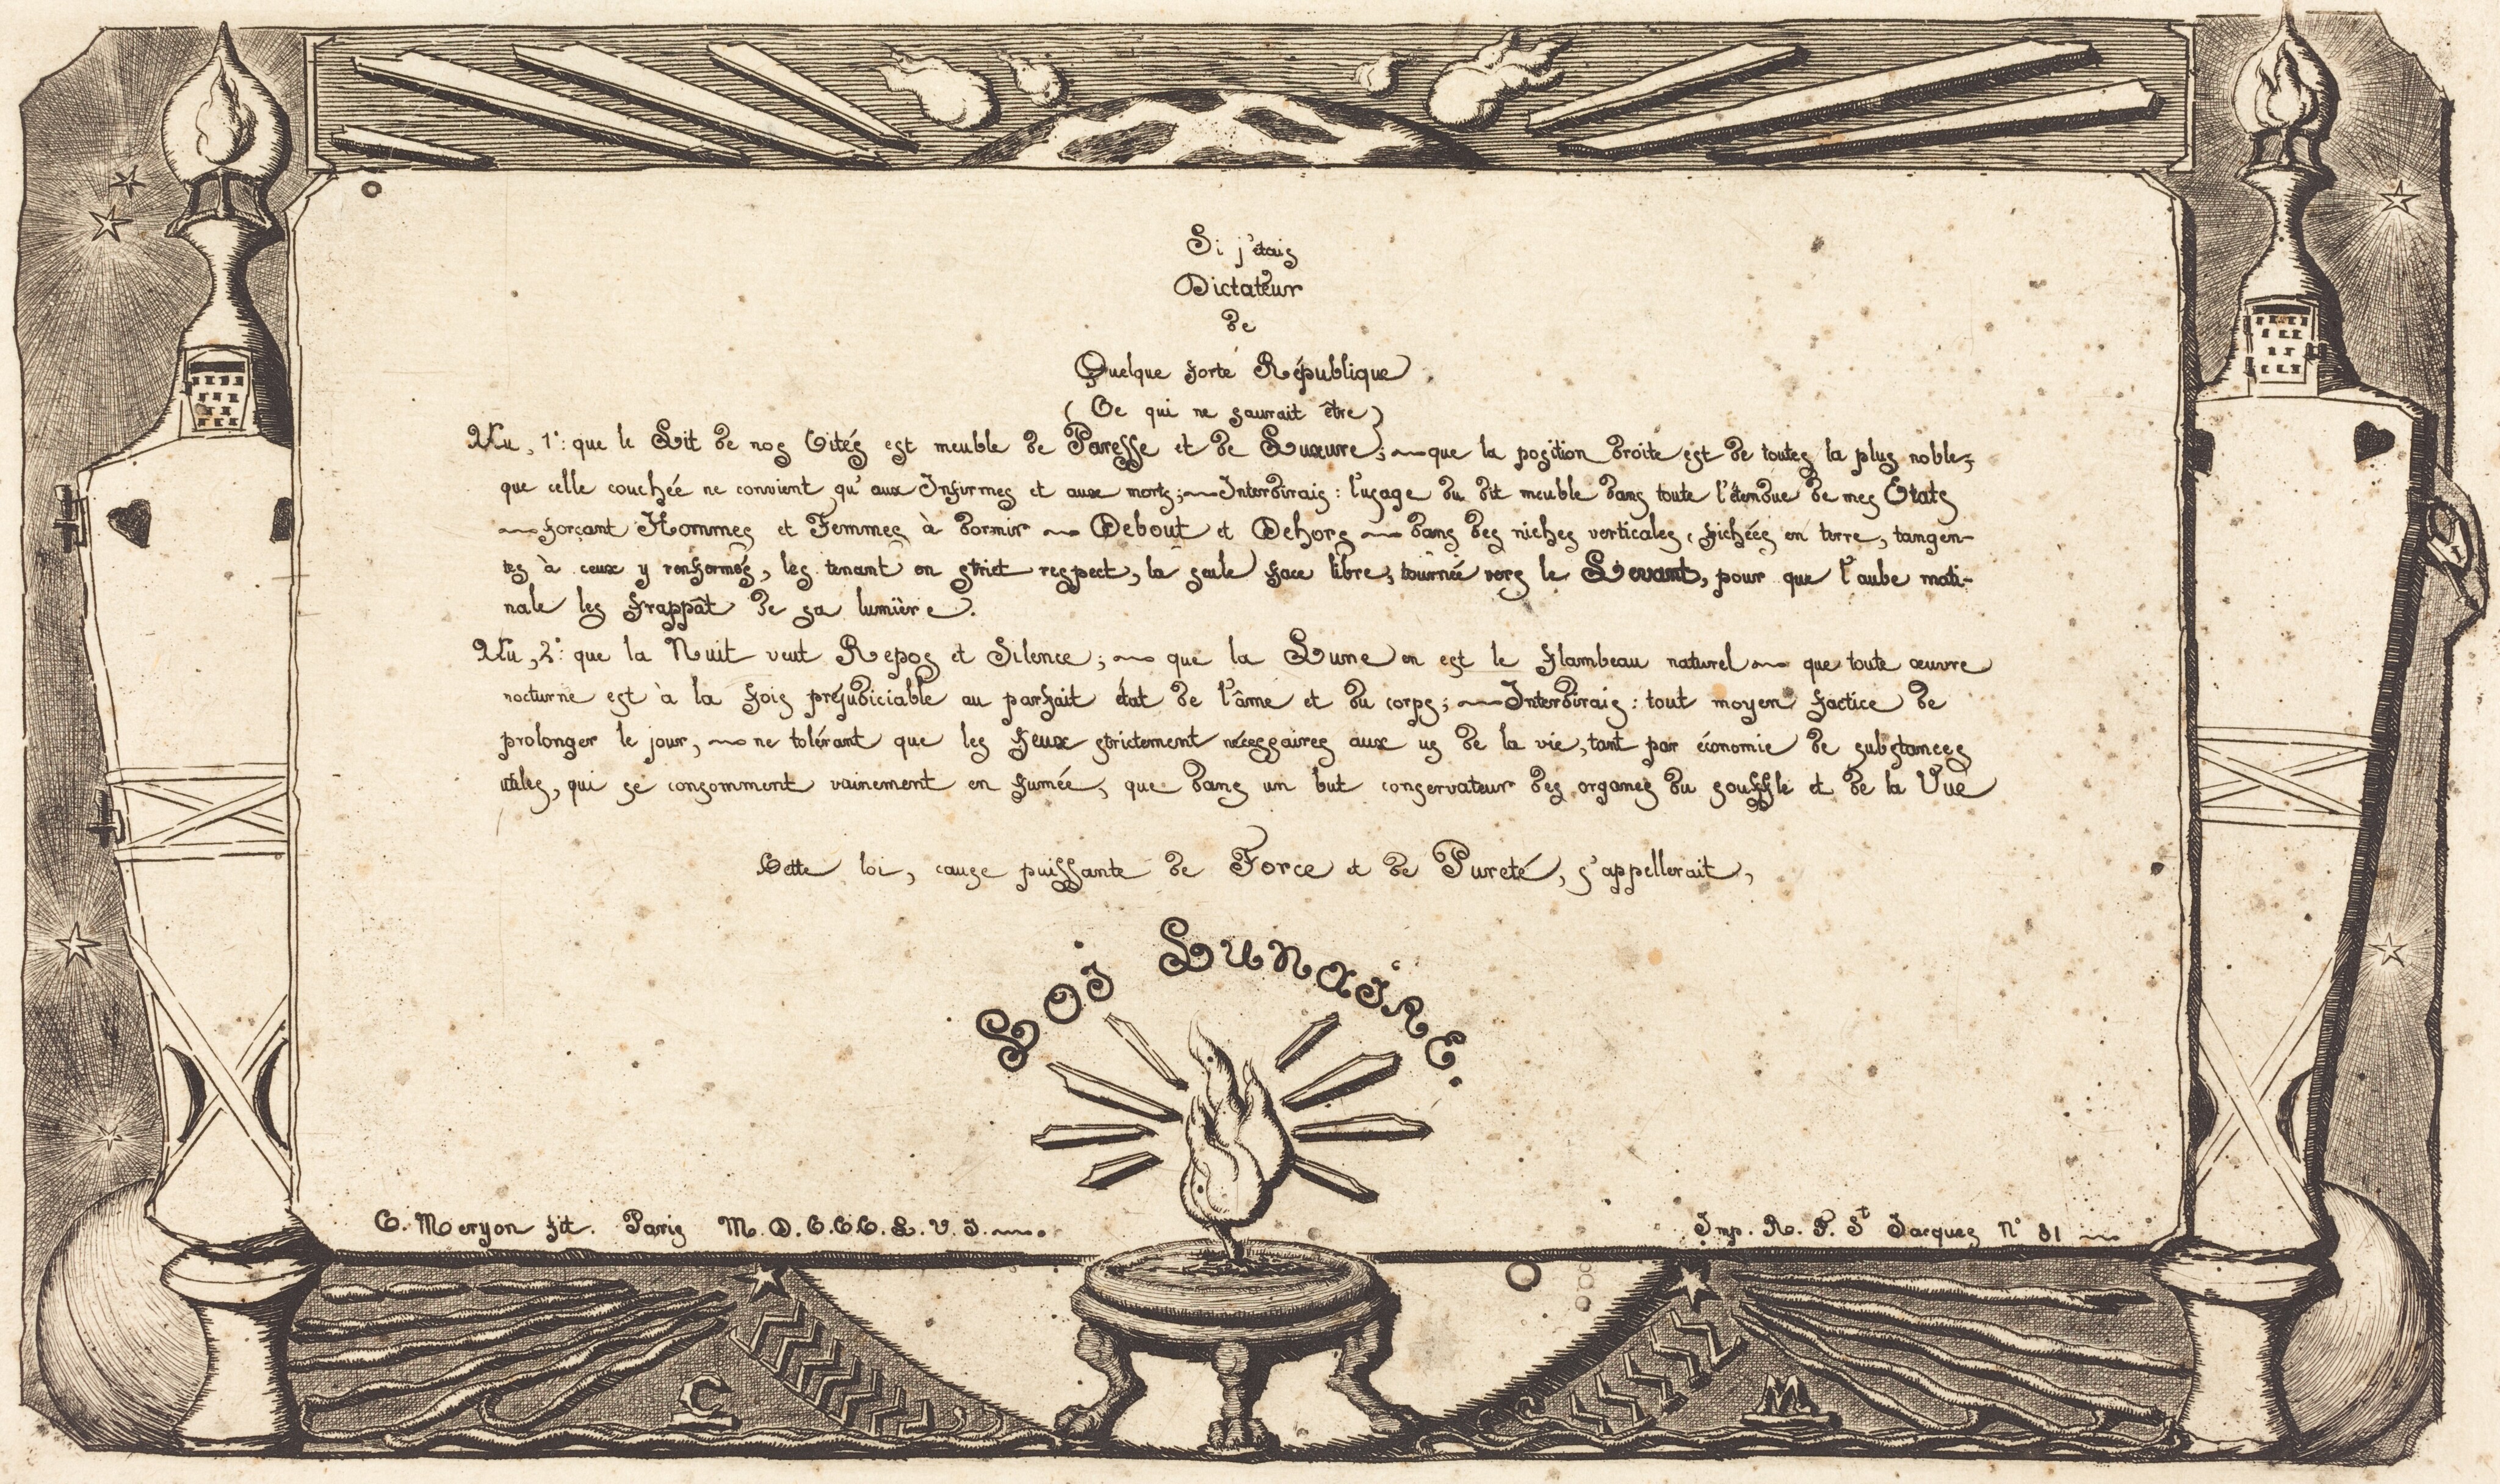 Si j'étais
Dictateur
de
Quelque forte République
(Ce qui ne saurait être)
Vu, 1°: que le Lit de nos Cités est meuble de Paresse et de Luxure; que la position droite est de toutes la plus noble,
que celle couchée ne convient qu'aux Infirmes et aux morts; Interdirais: l'usage du dit meuble dans toute l'étendue de mes États
forçant Hommes et Femmes à dormir Debout et Dehors dans des niches verticales, fichées en terre, tangen-
tes à ceux y renfermés, les tenant en strict respect, la seule face libre, tournée vers le Levant, pour que l'aube mati-
nale les frappât de sa lumière.
Vu, 2°: que la Nuit veut Repos et Silence; que la Lune en est le flambeau naturel que toute œuvre
nocturne est à la fois préjudiciable au parfait état de l'âme et du corps; Interdirais: tout moyen factice de
prolonger le jour, ne tolérant que les feux strictement nécessaires aux us de la vie, tant par économie de substances
utiles, qui se consomment vainement en fumée, que dans un but conservateur des organes du souffle et de la Vue
Cette loi, cause puissante de Force et de Pureté, s'appellerait,
LOI LUNAIRE.
C. Meryon fit. Paris M.D.C.C.C.L.V.I.
Imp. R. F. St Jacques N° 81
C
M